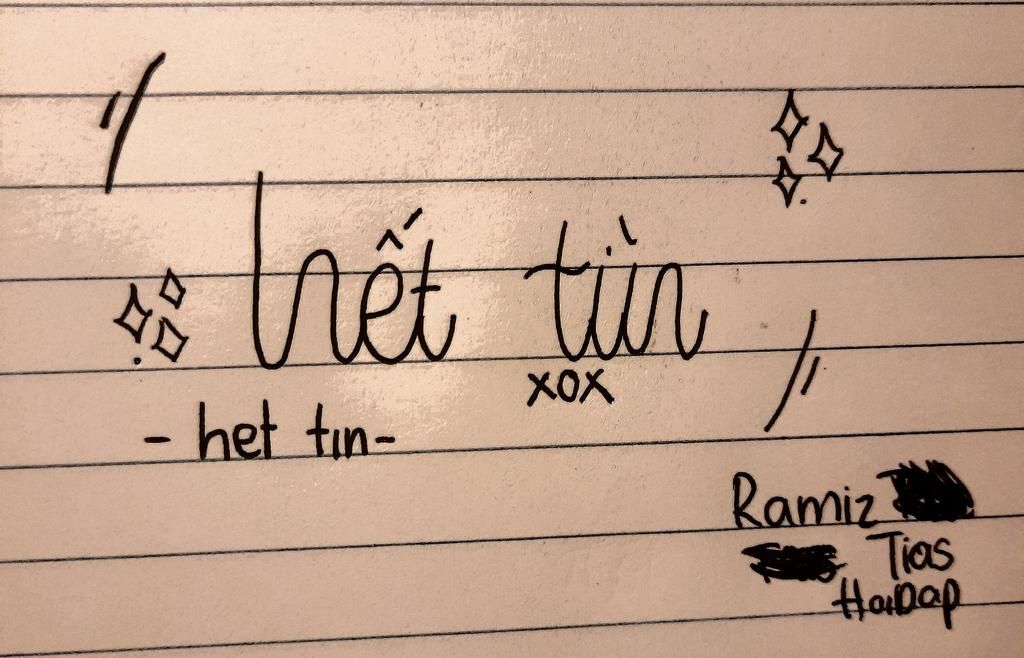 hết tiìn
xox
- het tın-
Ramiz
Tias
HaiDap